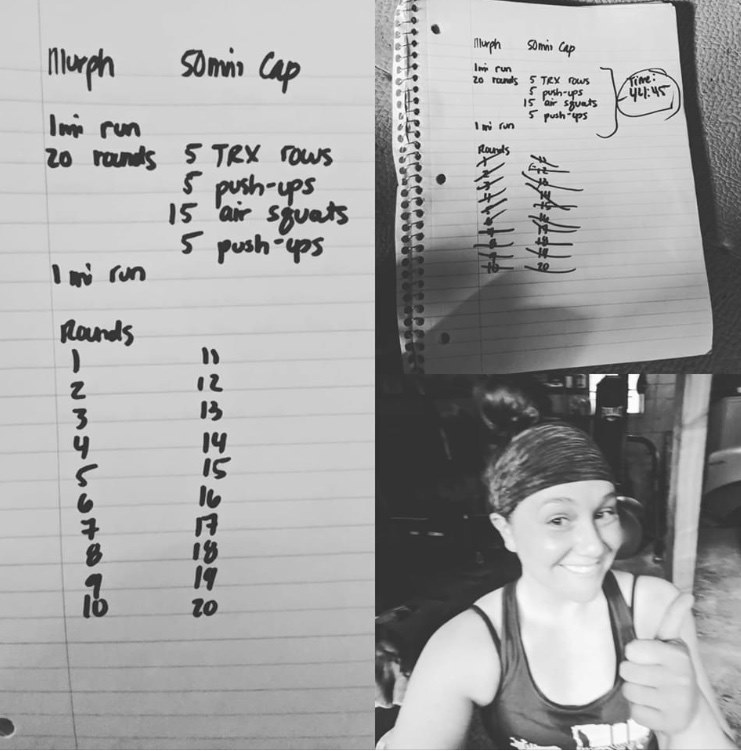 Murph 50min Cap
1mi run
20 rounds 5 TRX rows
5 push-ups
15 air squats
5 push-ups
1 mi run
Rounds
1 11
2 12
3 13
4 14
5 15
6 16
7 17
8 18
9 19
10 20
Murph 50min Cap
1mi run
20 rounds 5 TRX rows
5 push-ups
15 air squats
5 push-ups
1 mi run
Time:
44:45
Rounds
10 20